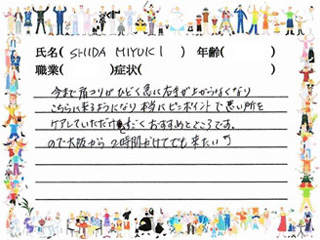 氏名( SHIDA MIYUKI ) 年齢( )
職業( )症状( )
今まで肩コリがひどく急に右手が上がらなくなり
こちらに来るようになり本当にピンポイントで悪い所を
ケアしていただけ すごくおすすめどころです。
ので大阪から2時間かけてでも来たい